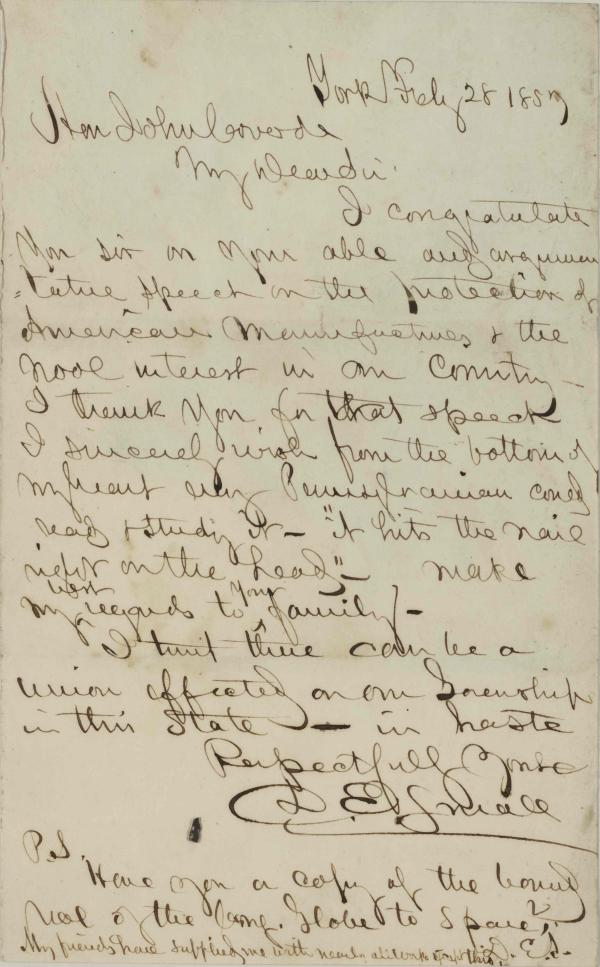 York Feby 28 1857
Hon John Covode
My Dear Sir
I congratulate
You sir on your able and argumen
=tative speech on the protection of
American Manufactures & the
Wool interest in our Country -
I thank you for that speech
I sincerely wish from the bottom of
my heart every Pennsylvanian could
read & study it - "it hits the nail
right on the head" - make
my best regards to your family -
I trust there can be a
union effected on our Governorship
in this State - in haste
Respectfully Yours
E Small
P.S.
Have you a copy of the bound
Vol of the Cong. Globe to spare?
My friends have supplied me with nearly all works except this. E. S.